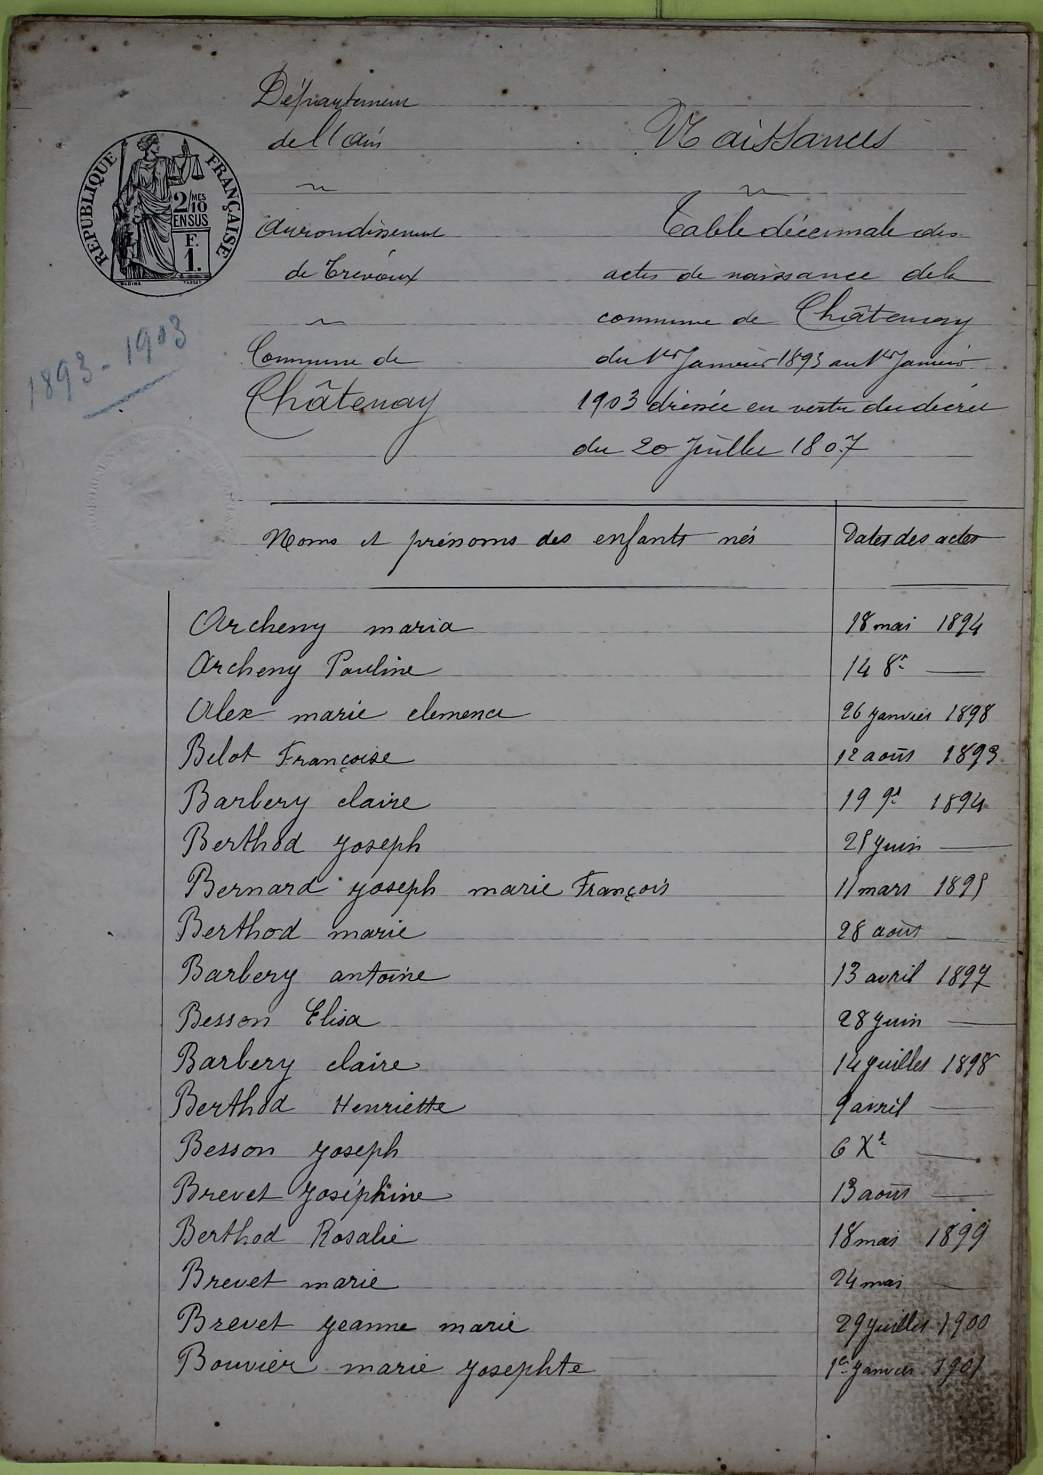 Département
de l'ain
Naissances
RÉPUBLIQUE FRANÇAISE
2/10 MES
EN SUS
F.
1.
arrondissement
de Trévoux
Table décennale des
actes de naissance de la
commune de Châtenay
du 1er Janvier 1893 au 1er Janvier
1903 dressée en vertu du décret
du 20 Juillet 1807
1893-1903
Commune de
Châtenay
Noms et prénoms des enfants nés Dates des actes
Archeny maria 18 mai 1894
Archeny Pauline 14 8re —
Alex marie clemence 26 janvier 1898
Belot Françoise 12 août 1893
Barbery claire 19 9re 1894
Berthod Joseph 25 juin —
Bernard Joseph marie François 11 mars 1895
Berthod marie 28 août —
Barbery antoine 13 avril 1897
Besson Elisa 28 juin —
Barbery claire 14 juillet 1898
Berthod Henriette 9 avril —
Besson Joseph 6 Xre —
Brevet Joséphine 13 août —
Berthod Rosalie 18 mai 1899
Brevet marie 24 mai —
Brevet Jeanne marie 29 juillet 1900
Bouvier marie Josephte 1er janvier 1901